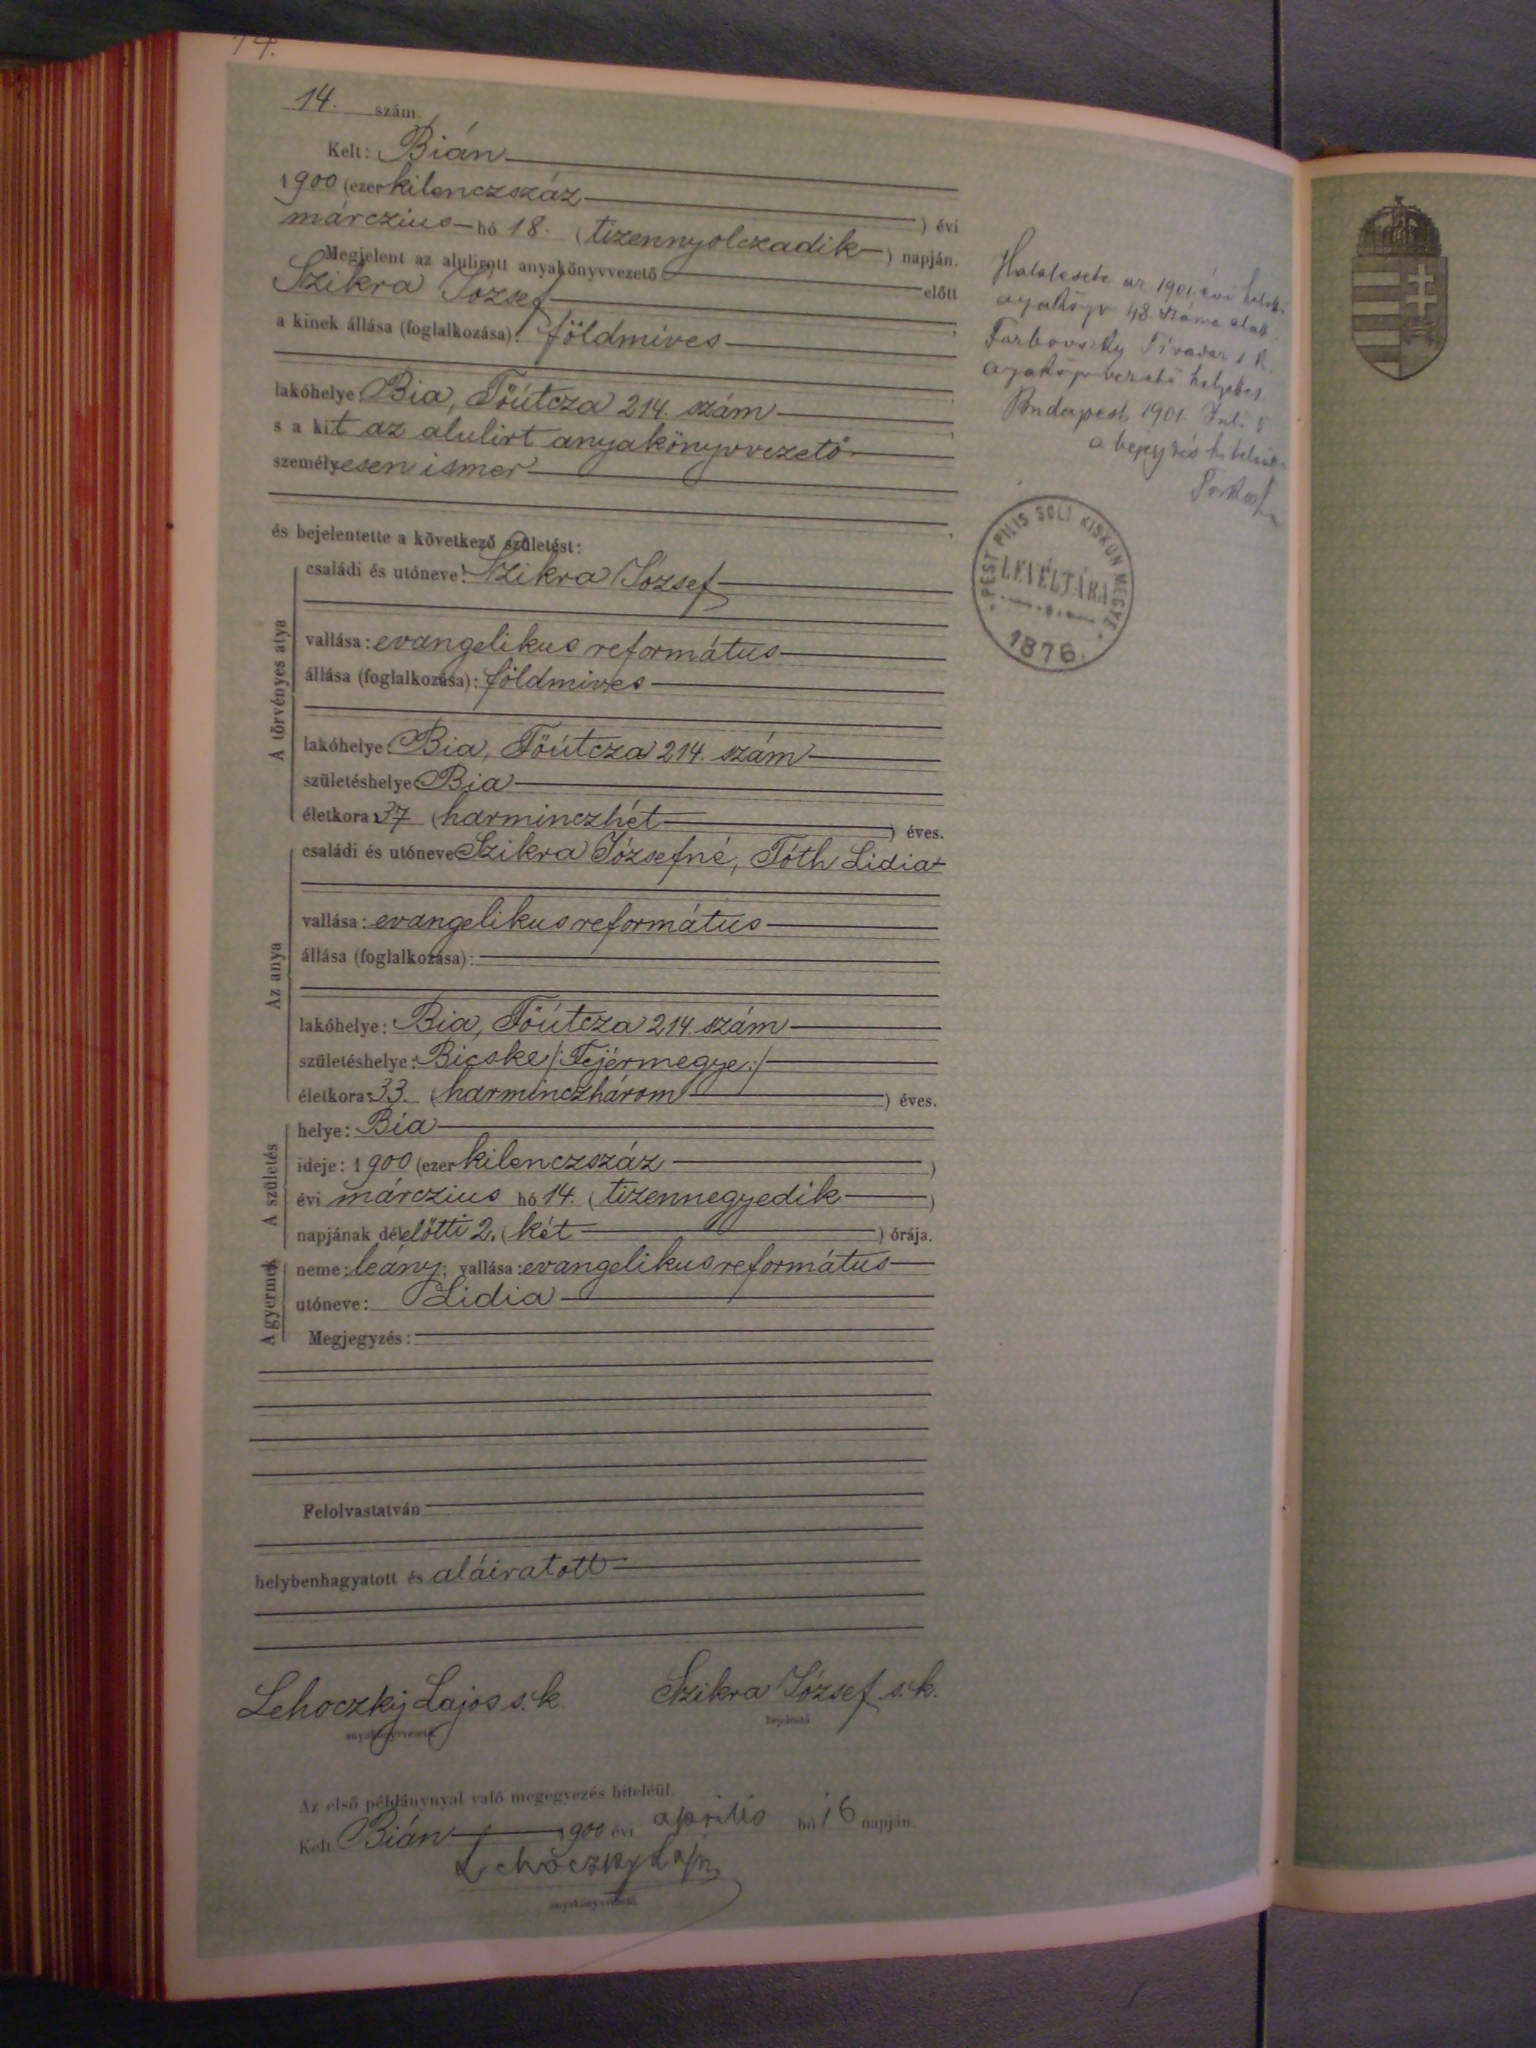 14.
14. szám
Kelt: Bián
1900 (ezerkilenczszáz ) évi
márczius hó 18. (tizennyolczadik ) napján.
Megjelent az alulirott anyakönyvvezető előtt
Szikra József
a kinek állása (foglalkozása): földmives
lakóhelye Bia, Főútcza 214. szám
s a kit az alulirt anyakönyvvezető
személyesen ismer
és bejelentette a következő születést:
A törvényes atya
családi és utóneve: Szikra József
vallása: evangelikus református
állása (foglalkozása): földmives
lakóhelye: Bia, Főútcza 214. szám
születéshelye Bia
életkora: 37 (harminczhét ) éves.
Az anya
családi és utóneve Szikra Józsefné, Tóth Lidia
vallása: evangelikus református
állása (foglalkozása):
lakóhelye: Bia, Főútcza 214. szám
születéshelye: Bicske /:Fejérmegye:/
életkora: 33. (harminczhárom ) éves.
A születés
helye: Bia
ideje: 1900 (ezerkilenczszáz )
évi márczius hó 14. (tizennegyedik )
napjának délelőtti 2. (két ) órája.
A gyermek
neme: leány; vallása: evangelikus református
utóneve: Lidia
Megjegyzés:
Felolvastatván
helybenhagyatott és aláiratott
Lehoczky Lajos s. k. Szikra József s. k.
anyakönyvvezető bejelentő
Az első példánynyal való megegyezés hiteléül.
Kelt Bián 1900 évi aprilis hó 16 napján
Lehoczky Lajos
anyakönyvvezető
Halálesete az 1901. évi
48. száma alatt
Tivadar s. k.
helyettes
Budapest, 1901.
a bejegyzés
PEST PILIS SOLT KISKUN MEGYE
LEVÉLTÁRA
1876.